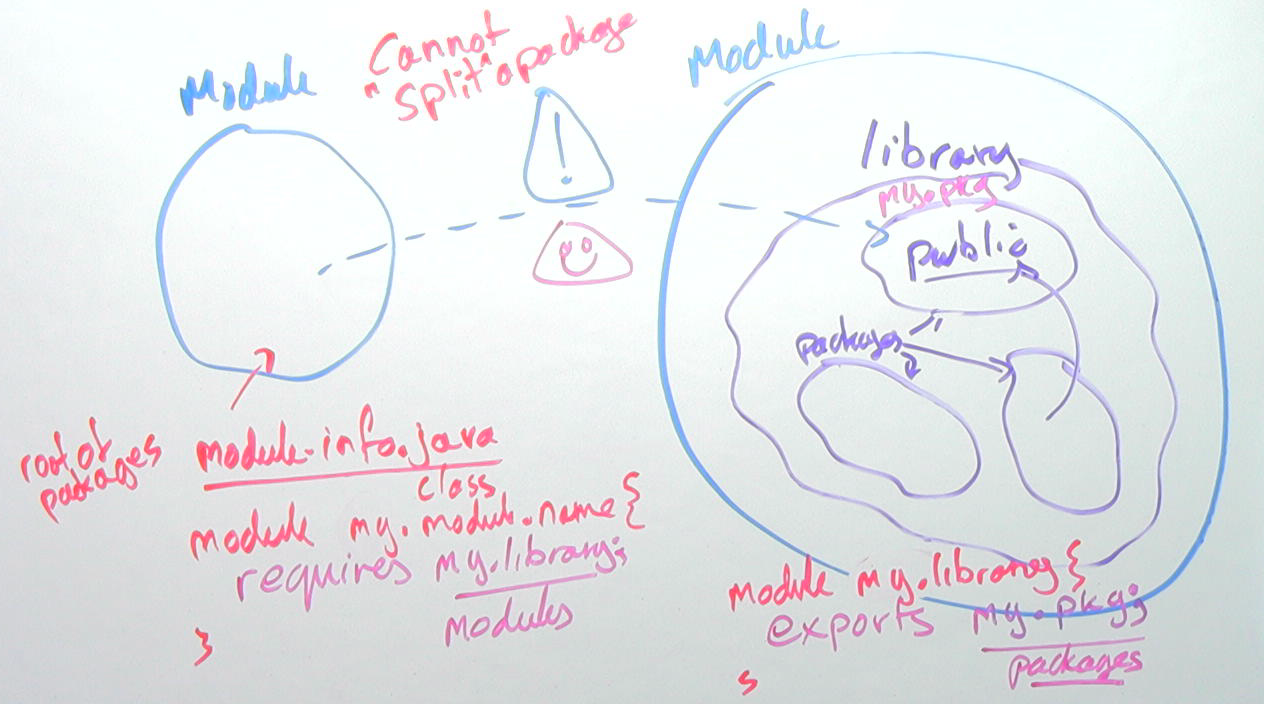 Module
Cannot
"split" a package
Module
!
library
my.pkg
public
packages
root of
packages
module-info.java
class
module my.module.name {
requires my.library;
modules
}
module my.library {
exports my.pkg;
packages
}